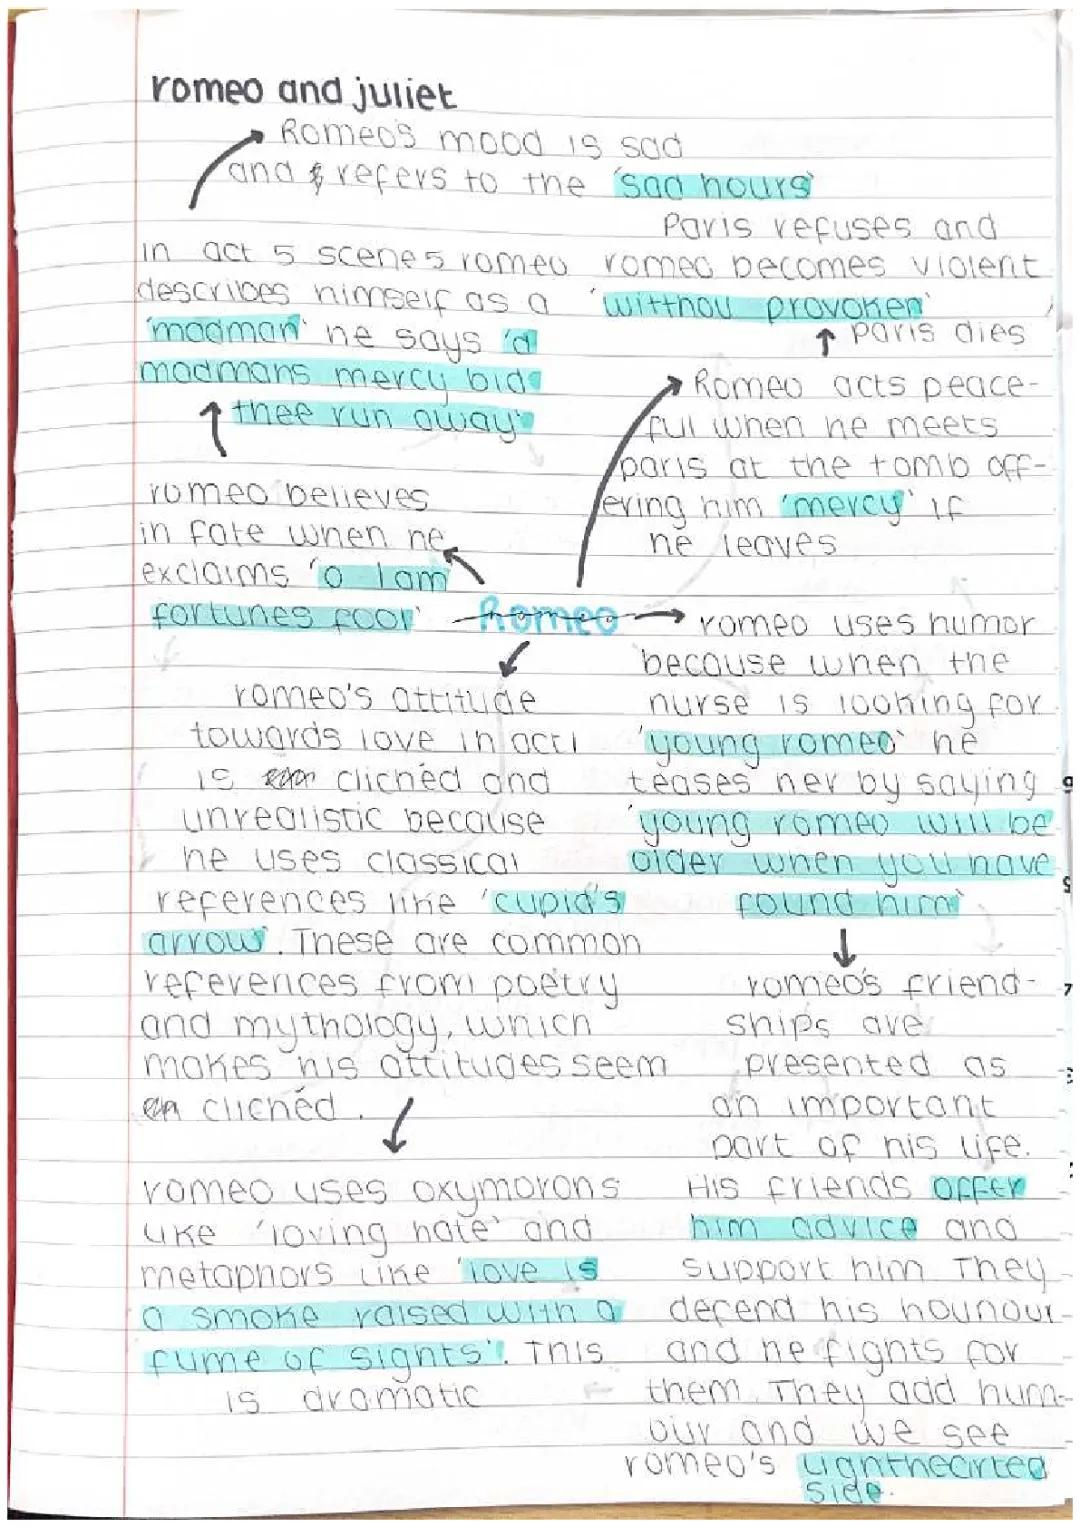 romeo and juliet
Romeo's mood is sad
and refers to the 'sad hours'
in act 5 scene 5 romeo
describes himself as a
'madman' he says 'a
madmans mercy bids
thee run away'
romeo believes
in fate when he
exclaims 'o I am
fortunes fool'
Paris refuses and
romeo becomes violent
'witthou provoken'
paris dies
Romeo acts peace-
ful when he meets
paris at the tomb off-
ering him 'mercy' if
he leaves
Romeo
romeo's attitude
towards love in act 1
is clichéd and
unrealistic because
he uses classical
references like 'cupid's
arrow'. These are common
references from poetry
and mythology, which
makes his attitudes seem
clichéd.
romeo uses oxymorons
like 'loving hate' and
metaphors like 'love is
a smoke raised with a
fume of sights'. This
is dramatic
romeo uses humor
because when the
nurse is looking for
'young romeo' he
teases her by saying
'young romeo will be
older when you have
found him'
romeo's friend-
ships are
presented as
an important
part of his life.
His friends offer
him advice and
support him They
defend his hounour
and he fights for
them. They add hum-
our and we see
romeo's lighthearted
side.